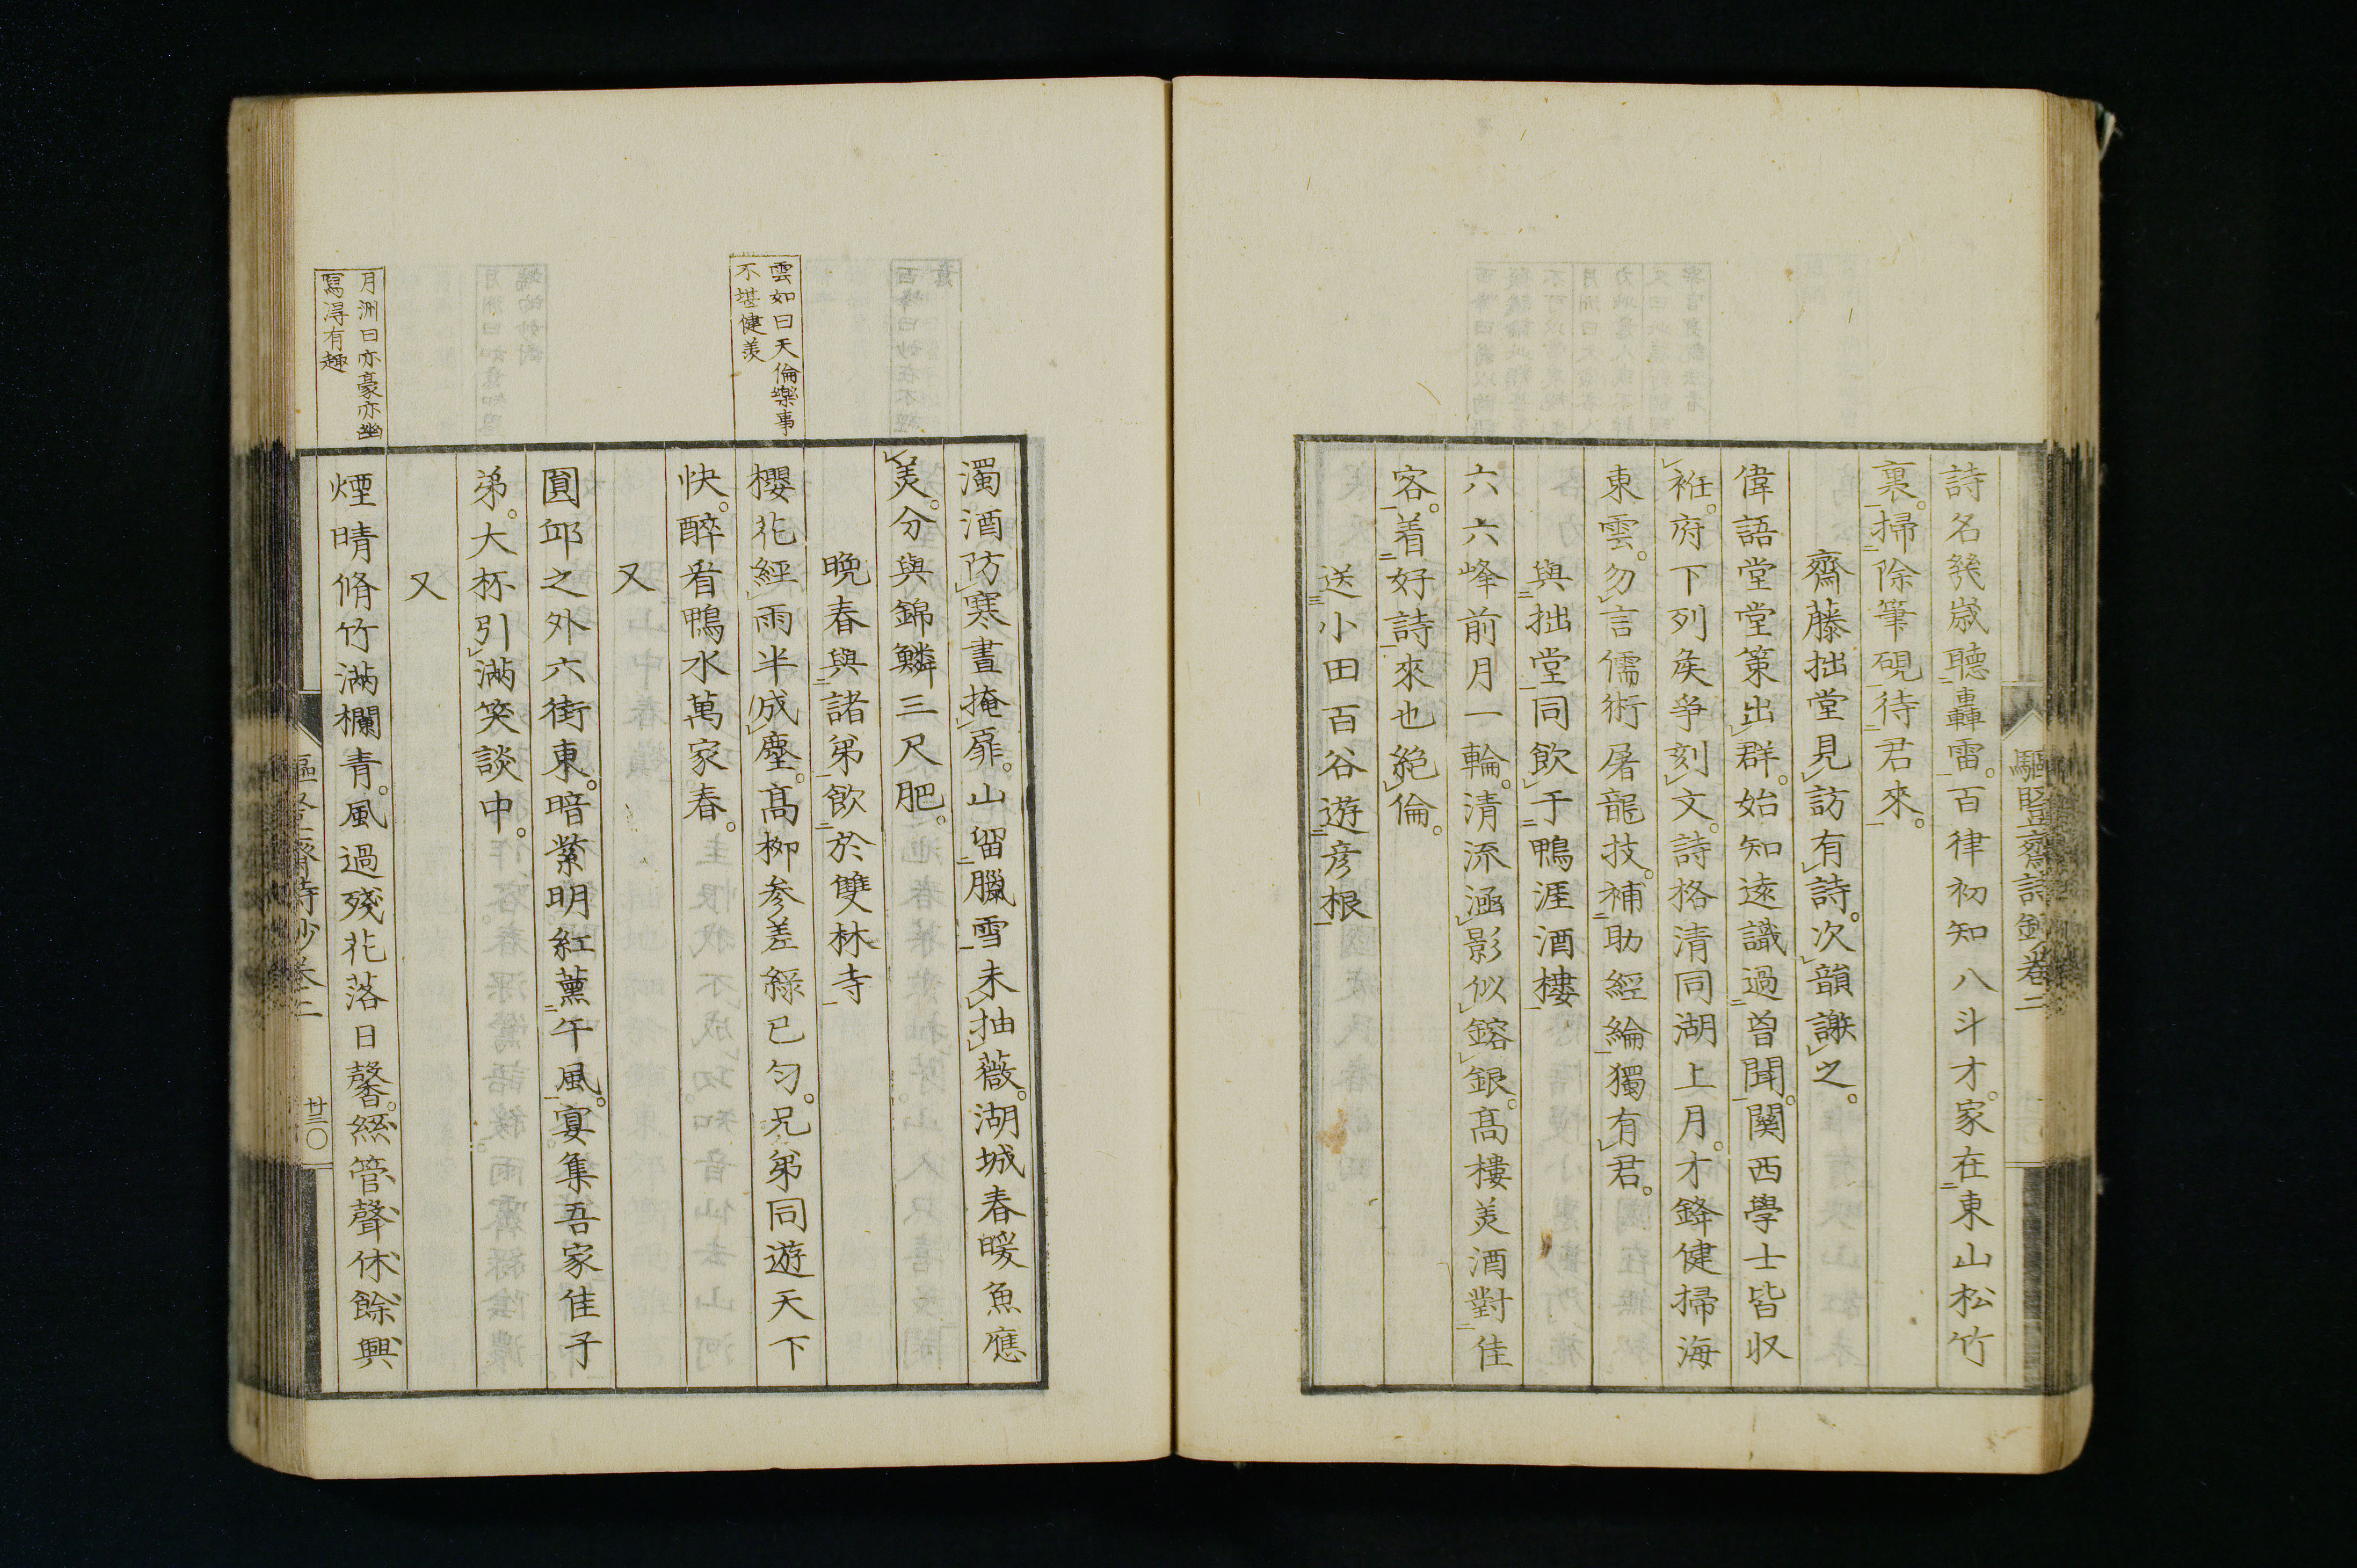 驅豎齋詩鈔卷二
詩名幾歲聽轟雷。百律初知八斗才。家在東山松竹
裏。掃除筆硯待君來。
齋藤拙堂見訪有詩。次韻謝之。
偉語堂堂策出群。始知遠識過曾聞。關西學士皆収
袵。府下列矦爭刻文。詩格清同湖上月。才鋒健掃海
東雲。勿言儒術屠龍技。補助經綸獨有君。
與拙堂同飲于鴨涯酒樓
六六峰前月一輪。清流涵影似鎔銀。髙樓美酒對佳
客。着好詩來也絶倫。
送小田百谷遊彦根
濁酒防寒晝掩扉。山留臘雪未抽薇。湖城春暖魚應
美。分與錦鱗三尺肥。
晩春與諸弟飲於雙林寺
雲如曰天倫樂事
不堪健羨
櫻花經雨半成塵。髙柳參差綠已匀。兄弟同遊天下
快。醉看鴨水萬家春。
又
圓邱之外六街東。暗紫明紅薫午風。宴集吾家佳子
弟。大杯引滿笑談中。
又
月洲曰亦豪亦幽
寫得有趣
煙晴脩竹滿欄青。風過殘花落日馨。絲管聲休餘興
驅豎齋詩鈔卷二
廿三